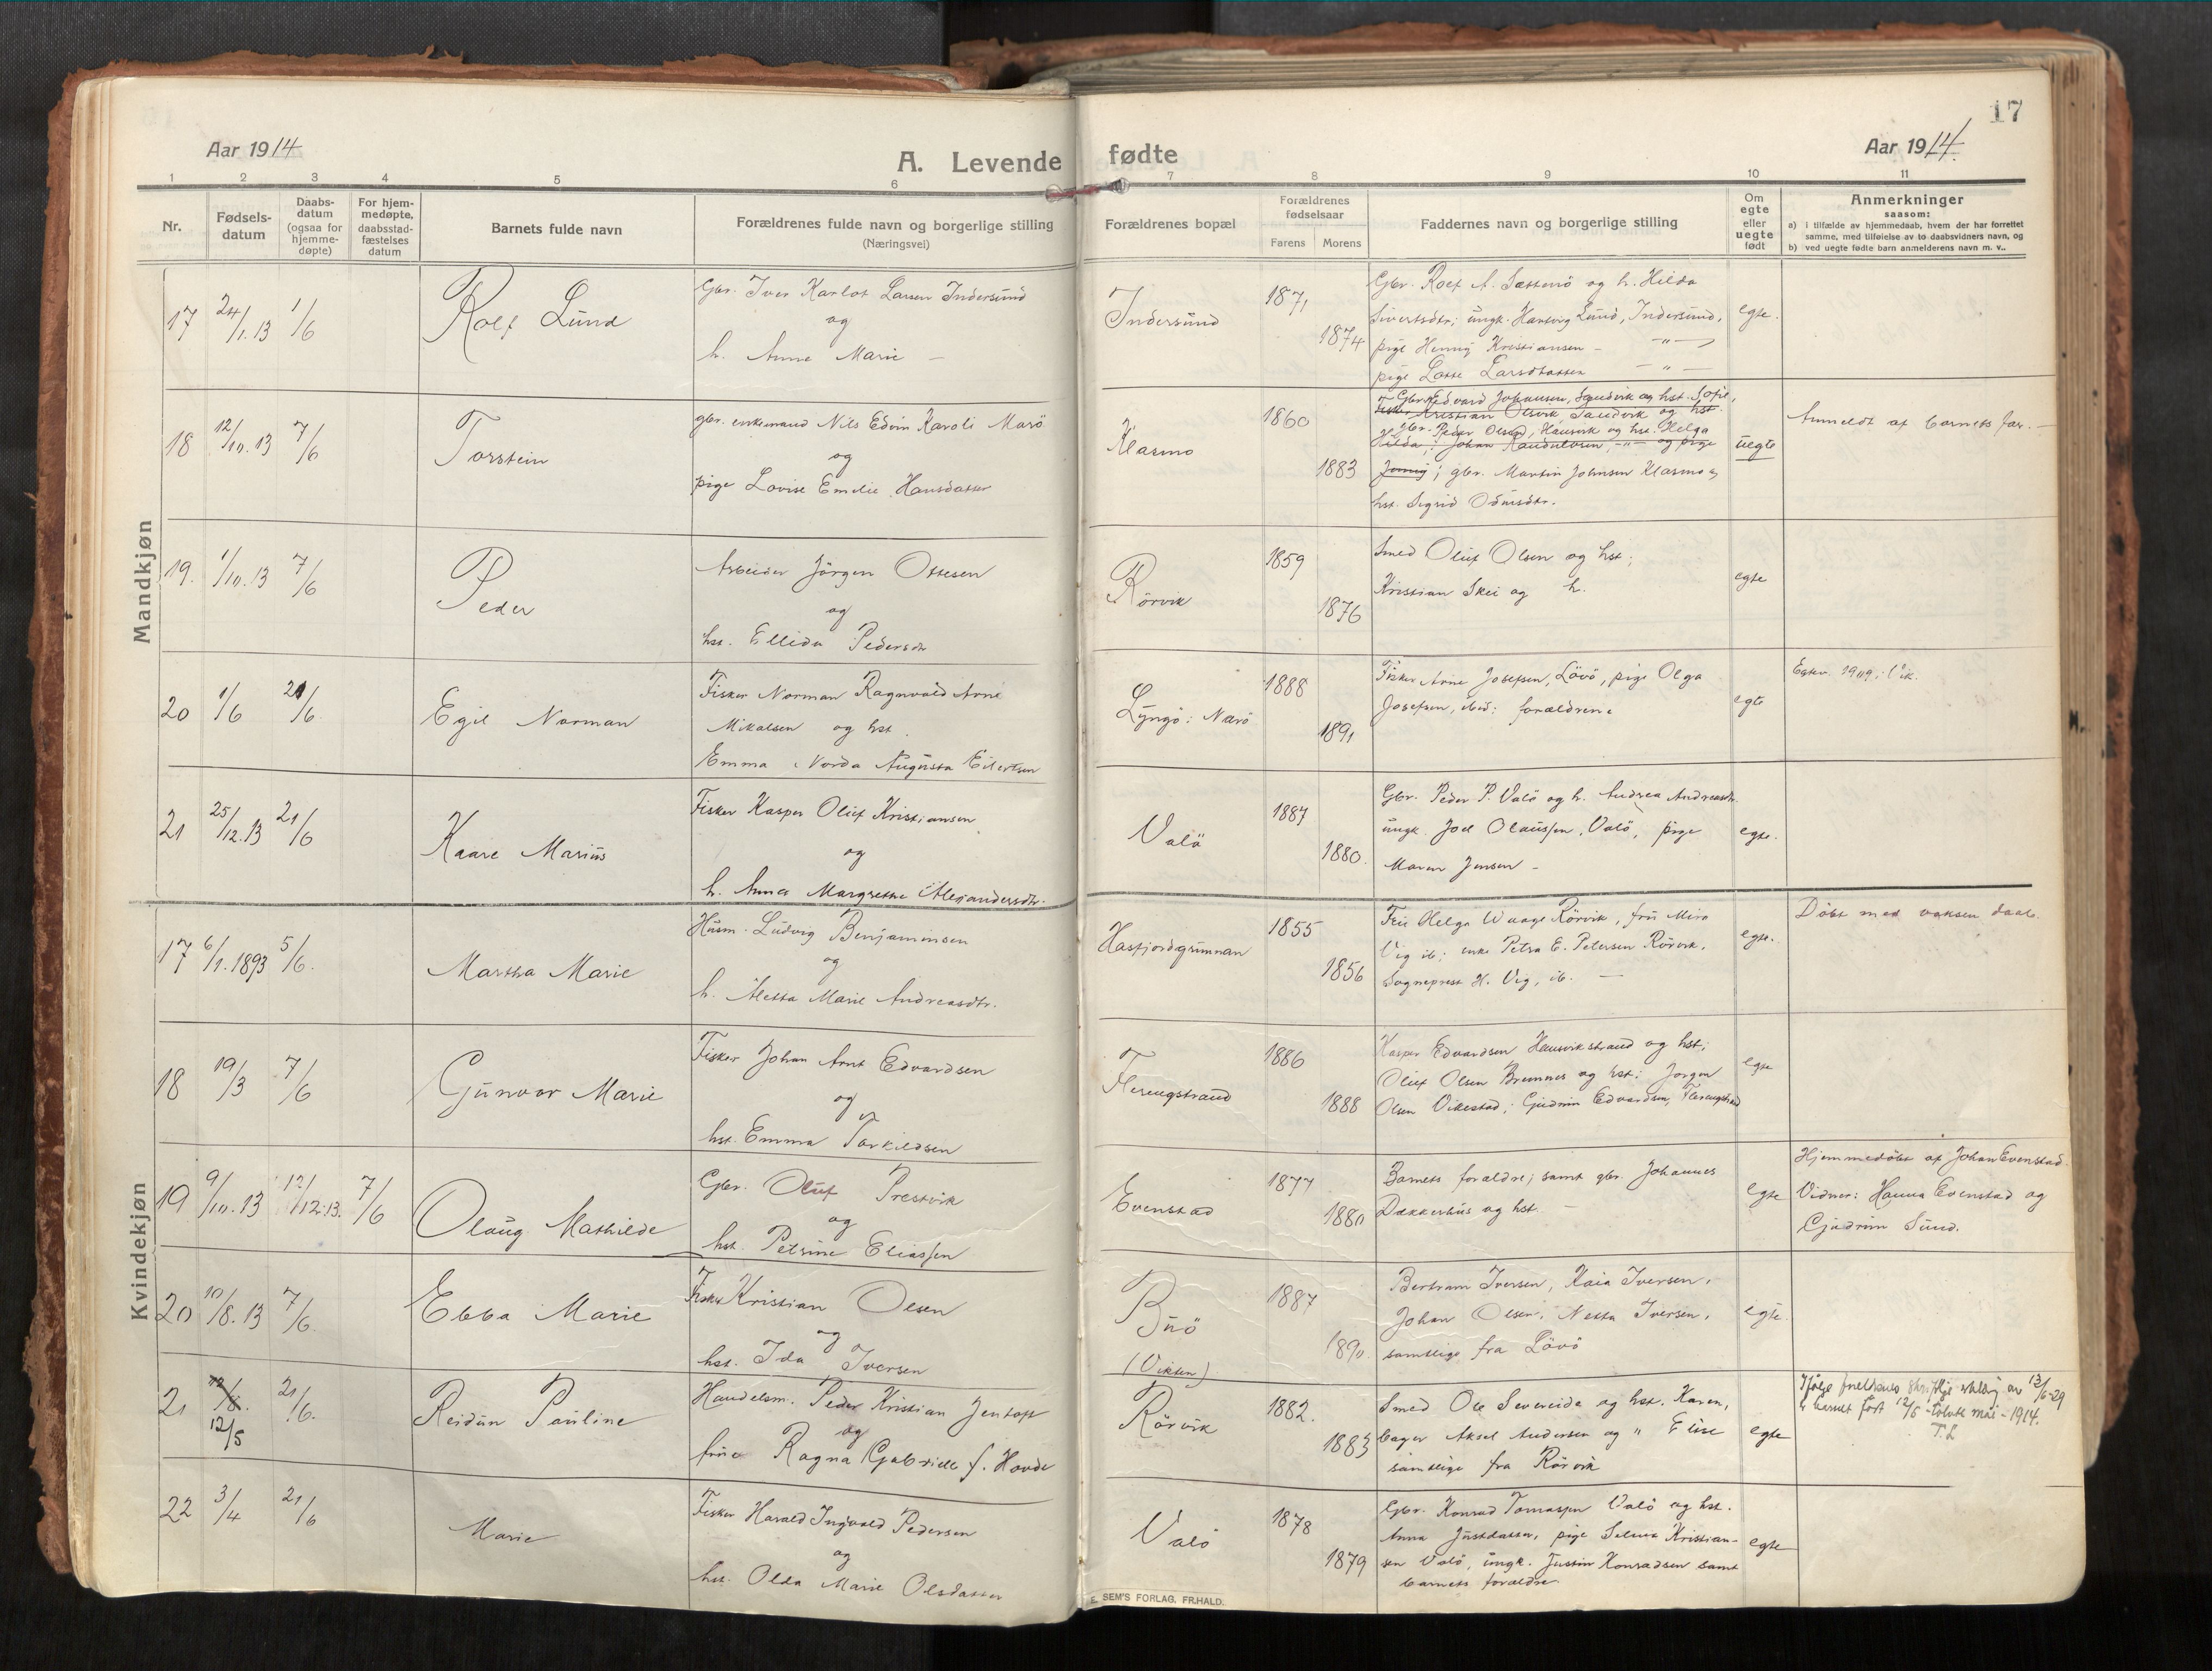 17
Aar 1914
A. Levende fødte
Aar 1914.
1 2 3 4 5 6 7 8 9 10 11
Nr.
Fødsels-
datum
Daabs-
datum
(ogsaa for
hjemme-
døpte)
For hjem-
medøpte,
daabsstad-
fæstelses
datum
Barnets fulde navn
Forældrenes fulde navn og borgerlige stilling
(Næringsvei)
Forældrenes bopæl
Forældrenes
fødselsaar
Farens Morens
Faddernes navn og borgerlige stilling
Om
egte
eller
uegte
født
Anmerkninger
saasom:
a) i tilfælde av hjemmedaab, hvem der har forrettet
samme, med tilføielse av to daabsvidners navn, og
b) ved uegte fødte barn anmelderens navn m. v..
Mandkjøn
17 24/1.13 1/6 Rolf Lund
Gbr. Iver Karlot Larsen Indersund
og
h. Anne Marie —
Indersund 1871 1874
Gbr. Rolf A. Sættenö og h. Hilda
Sivertsdtr; ungk. Hartvig Lund, Indersund,
pige Henny Kristiansen — " —
pige Lotte Larsdatter — " —
egte.
18 12/10.13 7/6 Torstein
gbr. enkemand Nils Edvin Karoli Marö
og
pige Lovise Emelie Hansdatter
Klasmo 1860 1883
Gbr. Edvard Johansen, Sandvik og hst. Sofie,
Fisker Kristian Olsvik Sandvik og hst.
gbr. Peder Olsen, Hansvik og hst. Helga
Hilda; Johan Randulvsen —"— og pige
Jenny; gbr. Martin Johnsen Klasmo og
hst. Sigrid Odinsdtr.
uegte
Anmeldt af barnets far. —
19. 1/10.13 7/6 Peder
Arbeider Jörgen Ottesen
og
hst. Ellida Pedersdtr
Rörvik 1859 1876
Smed Oluf Olsen og hst;
Kristian Skei og h.
egte
20 1/6 21/6 Egil Norman
Fisker Norman Ragnvald Arne
Mikalsen og hst.
Emma Norda Augusta Eilertsen
Lyngö i Nærö 1888 1891
Fisker Arne Josefsen, Lövö, pige Olga
Josefsen, ibid: forældrene
egte
Egtev. 1909 i Vik.
21 25/12.13 21/6 Kaare Marius
Fisker Kasper Oluf Kristiansen
og
h. Anna Margrethe Alexandersdtr.
Valö 1887 1880.
Gbr. Peder P. Valö og h. Andrea Andreasdtr.
ungk. Joel Olaussen, Valö, pige
Maren Jensen —
egte.
Kvindekjøn
17 6/1.1893 5/6. Martha Marie
Husm. Ludvig Benjaminsen
og
h. Aletta Marie Andreasdtr.
Hasfjordgrunnan 1855 1856
Fru Helga Waage Rörvik, fru Mira
Vig ib; enke Petra E. Petersen Rörvik,
Sogneprest H. Vig, ib. —
egte.
Döbt med voksen daab.
18 19/3 7/6 Gunvor Marie
Fisker Johan Arnt Edvardsen
og
hst. Emma Torkildsen
Flerengstrand 1886 1888
Kasper Edvardsen Hansvikstrand og hst;
Oluf Olsen Bremnes og hst; Jorgen
Olsen Vikestad; Gudrun Edvardsen, Flerengstrand
egte
19 9/10.13 12/12.13. 7/6 Olaug Mathilde
Gbr. Oluf Prestvik
og
hst. Petrine Eliassen
Evenstad 1877 1880
Barnets forældre; samt gbr. Johannes
Dækkerhus og hst. —
egte
Hjemmedöbt af Johan Evenstad.
Vidner: Hanna Evenstad og
Gudrun Sund.
20 10/8.13 7/6 Ebba Marie
Fisker Kristian Olsen
og
hst. Ida Iversen
Buö
(Vikten)
1887 1890.
Bertram Iversen, Kaia Iversen,
Johan Olsen, Netta Iversen,
samtlige fra Lövö
egte.
21 12/8. 12/5 21/6. Reidun Pauline
Handelsm. Peder Kristian Jentoft
og
frue Ragna Gabrielle f. Hovde
Rörvik 1882. 1883
Smed Ole Severeide og hst. Karen,
bager Aksel Andersen og " Elise
samtlige fra Rörvik
egte
Ifölge av 13/6-29
er barnet född 12/5 - tolvte mai - 1914.
T.L
22 3/4 21/6 Marie
Fisker Harald Ingvald Pedersen
og
hst. Olda Marie Olsdatter
Valö 1878 1879
Gbr. Konrad Tomassen Valö og hst.
Anna Justdatter, pige Selma Kristian-
sen Valö, ungk. Justin Konradsen samt
barnets forældre.
egte
E. SEM'S FORLAG, FR.HALD.